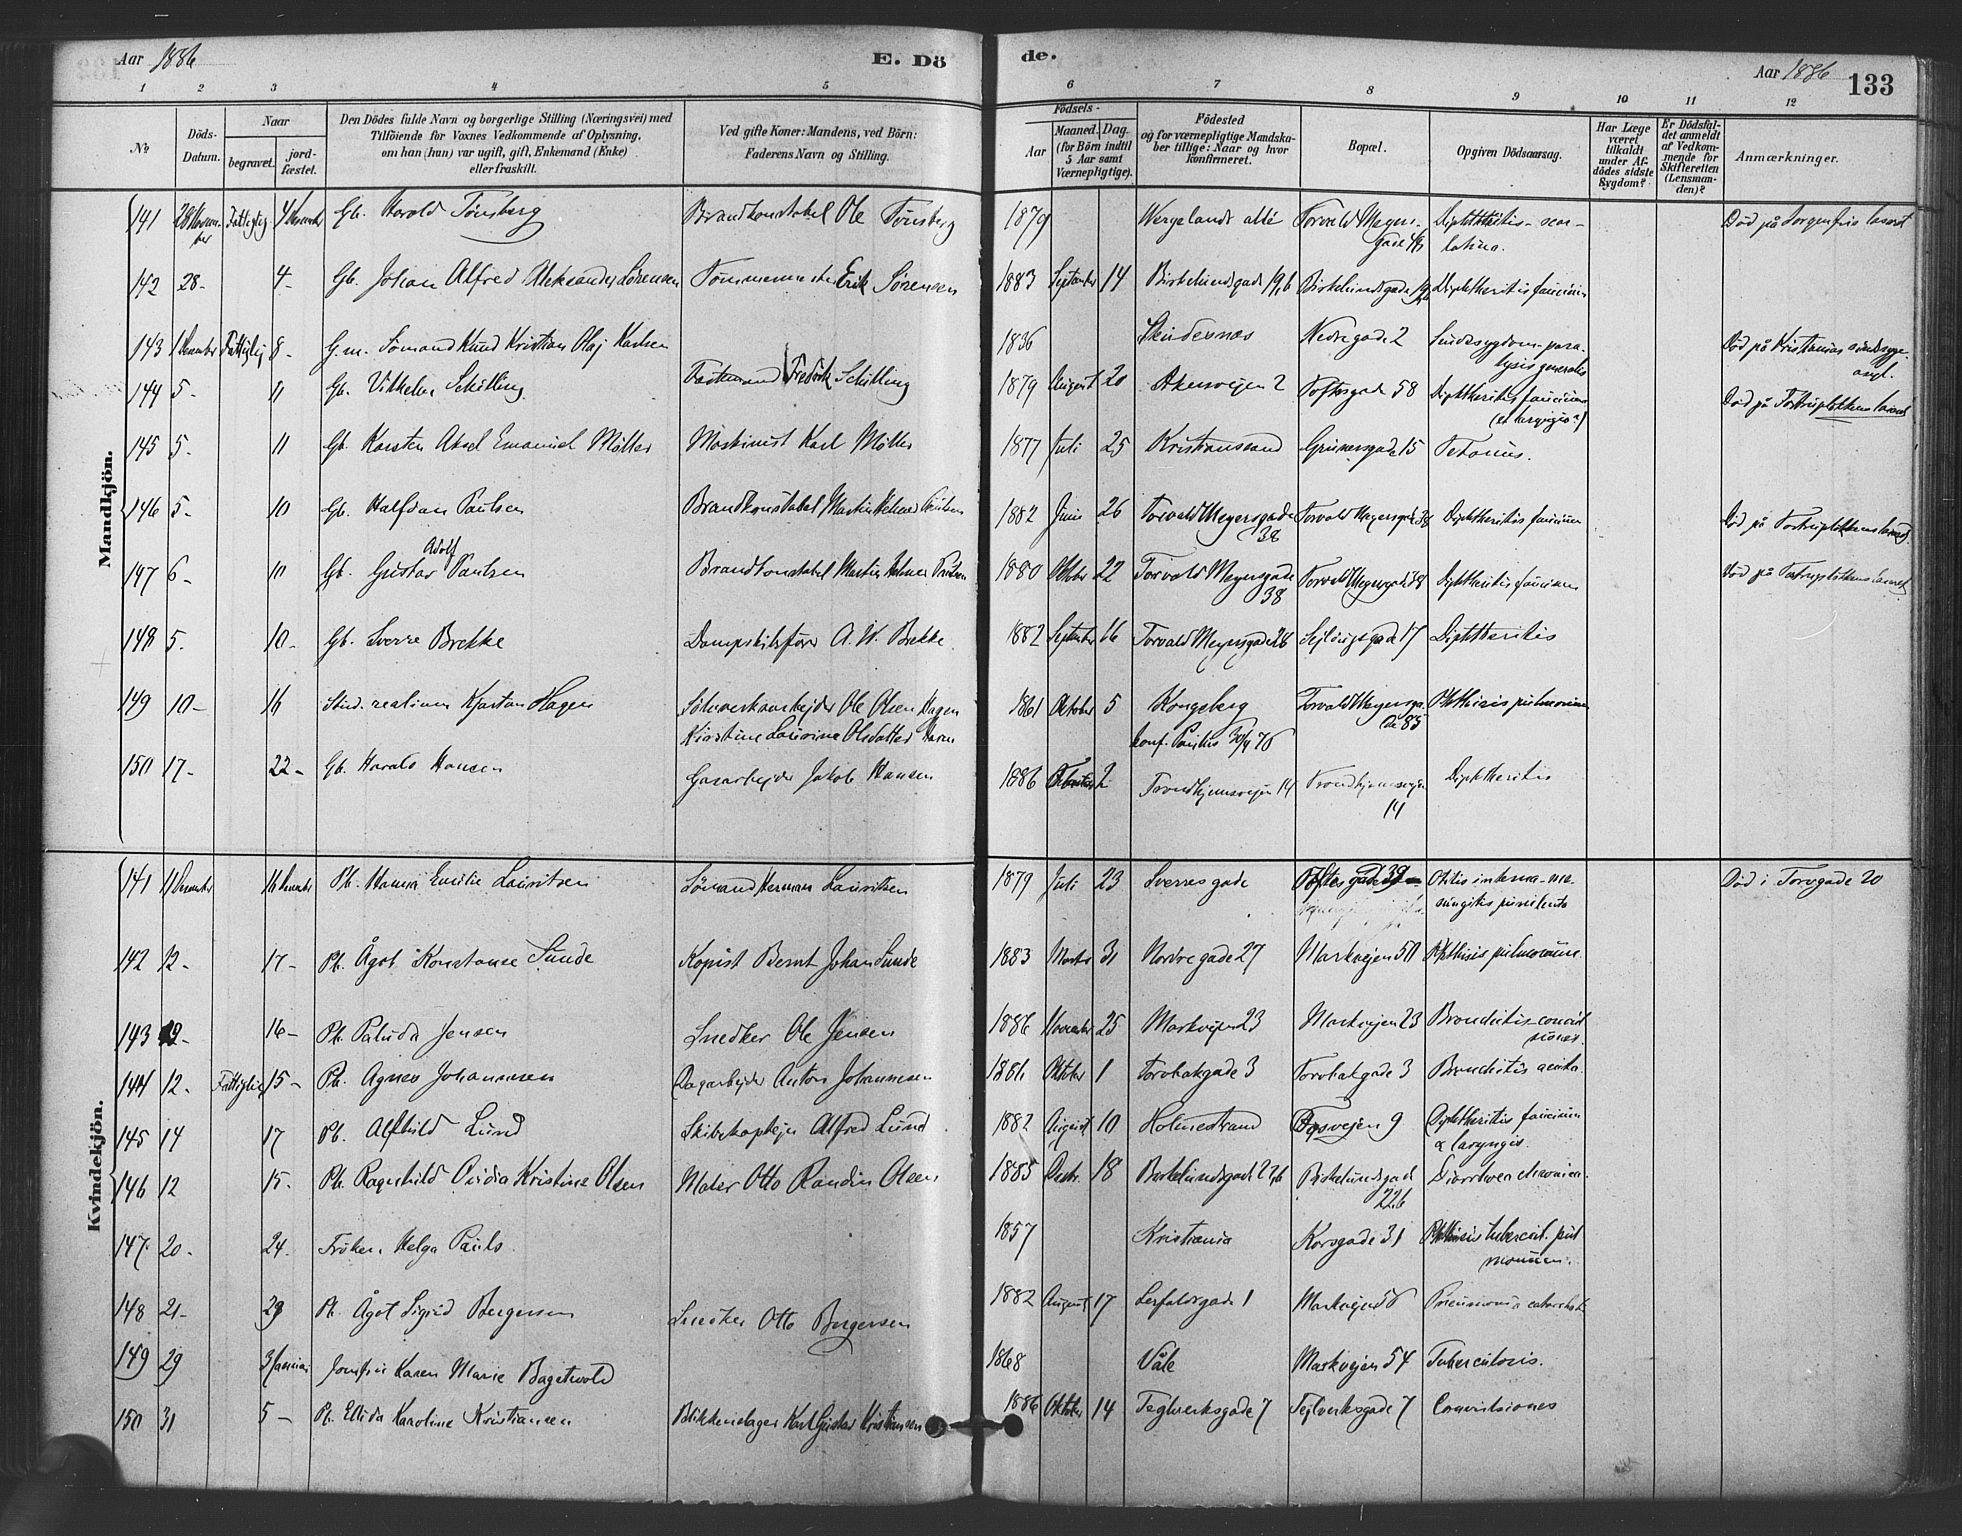 Aar 1886
E. Dö
de.
Aar 1886
133
1 2 3 4 5 6 7 8 9 10 11 12
No.
Döds-
Datum.
Naar
begravet.
jord-
fæstet.
Den Dödes fulde Navn og borgerlige Stilling (Næringsvei) med
Tilföiende for Voxnes Vedkommende af Oplysning,
om han (hun) var ugift, gift, Enkemand (Enke)
eller fraskilt.
Ved gifte Koner: Mandens, ved Börn:
Faderens Navn og Stilling.
Födsels-
Aar
Maaned.
Dag.
(for Börn indtil
5 Aar samt
Værnepligtige).
Födested
og for værnepligtige Mandska-
ber tillige: Naar og hvor
konfirmeret.
Bopæl.
Opgiven Dödsaarsag.
Har Læge
været
tilkaldt
under Af-
dödes sidste
Sygdom?
Er Dödsfal-
det anmeldt
af Vedkom-
mende for
Skifteretten
(Lensman-
den)?
Anmærkninger.
Mandkjön.
141 28 Novem- Fattiglig 4 Gb. Harald Tønsberg Brandkonstabel Ole Tønsberg 1879 Wergelands allé Torvald Meyers- Diphtheritis - scar- Død på Sorgenfris lasaret
ber gade latina.
142 28- 4- Gb. Johan Alfred Aleksander Sørensen Tømmermester Erik Sørensen 1883 September 14 Birkelundsgade 19,b Birkelundsgade Diphtheritis faucium
143 1 December Fattiglig 8- G.m. Sømand Knud Kristian Olaj Karlsen 1836 Skudesnæs Nedregade 2 Sindssygdom - para- Død på Kristianias sindssyge-
lysis generalis asyl.
144 5- 11 Gb. Vilhelm Schilling Fredrik Schilling 1879 August 20 Akersvejen 2 Toftesgade 58 Diphtheritis faucium Død på lasaret
145 5- 11 Gb. Karsten Aksel Emanuel Møller Maskinist Karl Møller 1877 Juli 25 Kristianssand Grünersgade 15 Tetanus.
146 5- 10 Gb. Halfdan Paulsen Brandkonstabel Martin Paulsen 1882 Juni 26 Torvald Meyersgade Torvald Meyersgade 38 Diphtheritis faucium Død på lasaret
38
Adolf
147 6- 10 Gb. Gustav Paulsen Brandkonstabel Martin Paulsen 1880 Oktober 22 Torvald Meyersgade Torvald Meyersgade 38 Diphtheritis faucium Død på lasaret
38
148 5. 10- Gb. Sverre Brekke Dampskibsfører A. W. Brekke 1882 September 16 Torvald Meyersgade 26 Sejldugsgade 17 Diphtheritis
149 10- 16 Stud. realium Kjartan Hagen Sølvverksarbejder Ole Olsen Hagen 1861 Oktober 5 Kongsberg Torvald Meyersga- Phthisis pulmonum
Kirstine Laurine Olsdatter konf. Paulus de 85
150 17- 22- Gb. Harald Hansen Gasarbejder Jakob Hansen 1886 2 Trondhjemsvejen 14 Trondhjemsvejen Diphtheritis
14
Kvindekjön.
141 11 December 16 December Pb. Hanna Emilie Lauritsen Sømand Herman Lauritsen 1879 Juli 23 Sverresgade Toftesgade 39 Otitis interna - me- Død i Torvgade 20
ningitis purulenta
142 12- 17- Pb. Ågot Konstanse Sunde Kopist Bernt Johan Sunde 1883 Marts 31 Nordregade 27 Markvejen 50 Phthisis pulmonum.
143 16- Pb. Paluda Jensen Snedker Ole Jensen 1886 November 25 Markvejen 23 Markvejen 23 Bronchitis - convul-
siones.
144 12- Fattiglig 15- Pb. Agnes Johannesen Dagarbejder Anton Johannesen 1886 Oktober 1 Torvbakgade 3 Torvbakgade 3 Bronchitis acuta.
145 14 17 Pb. Alfhild Lund Skibskaptejn Alfred Lund 1882 August 10 Holmestrand 9 Diphtheritis faucium
& laryngis.
146 12 15- Pb. Ragnhild Ovidia Kristine Olsen Maler Otto Randin Olsen 1885 Decbr. 18 Birkelundsgade 22,b Birkelundsgade Diarrhoea chronica.
22b
147. 20- 24. Frøken Helga Pauls. 1857 Kristiania Korsgade 31 Phthisis tubercul. pul-
monum.
148 21- 29 Pb. Ågot Sigrid Bergersen Snedker Otto Bergersen 1882 August 17 Lerfaldsgade 1 Markvejen 56 Pneumonia catarrhal.
149 29 3 Januar Jomfru Karen Marie Bagstvold 1868 Våle Markvejen 54 Tuberculosis.
150 31 5- Pb. Ellida Karoline Kristiansen Blikkenslager Karl Gustav Kristiansen 1886 Oktober 14 Teglverksgade 7 Teglverksgade 7 Convulsiones